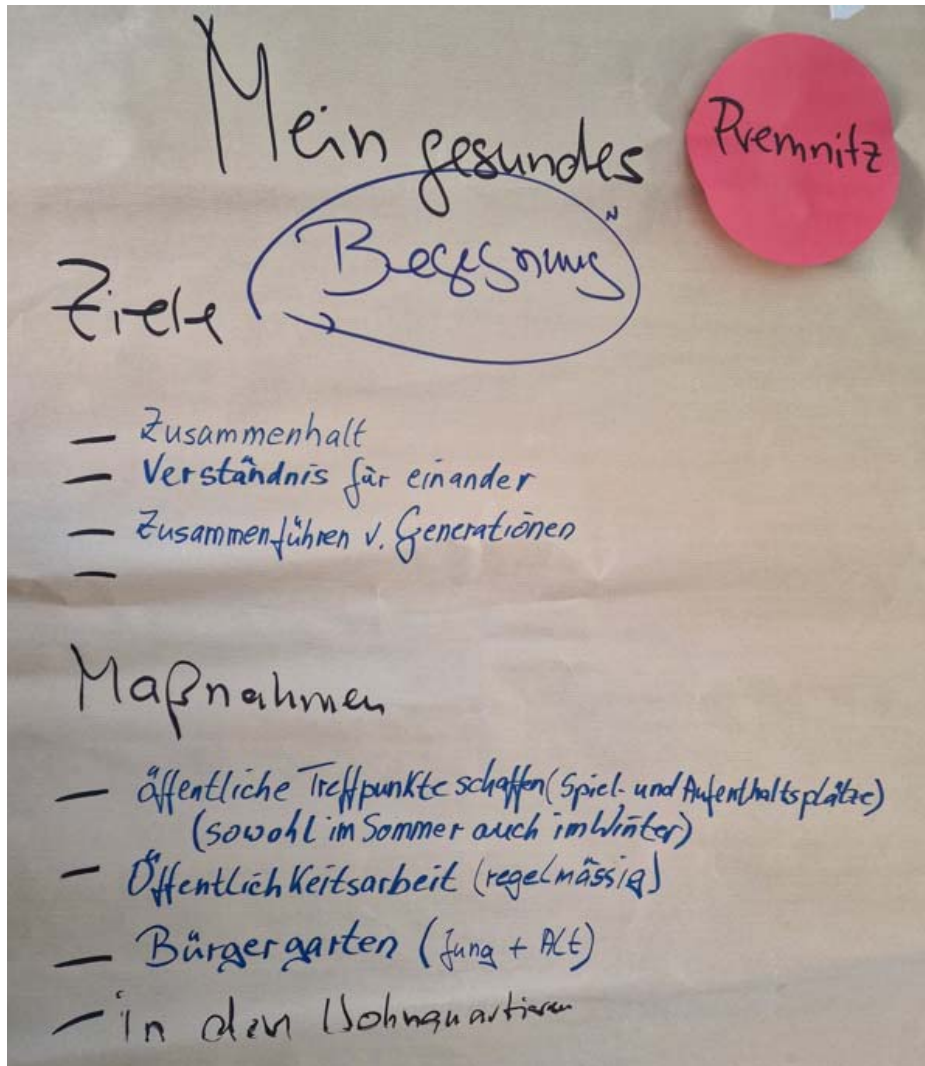 Mein gesundes
Premnitz
Begegnung
Ziele
– Zusammenhalt
– Verständnis für einander
– Zusammenführen v. Generationen
–
Maßnahmen
– öffentliche Treffpunkte schaffen (Spiel- und Aufenthaltsplätze)
(sowohl im Sommer auch im Winter)
– Öffentlichkeitsarbeit (regelmässig)
– Bürgergarten (Jung + Alt)
– in den Wohnquartieren